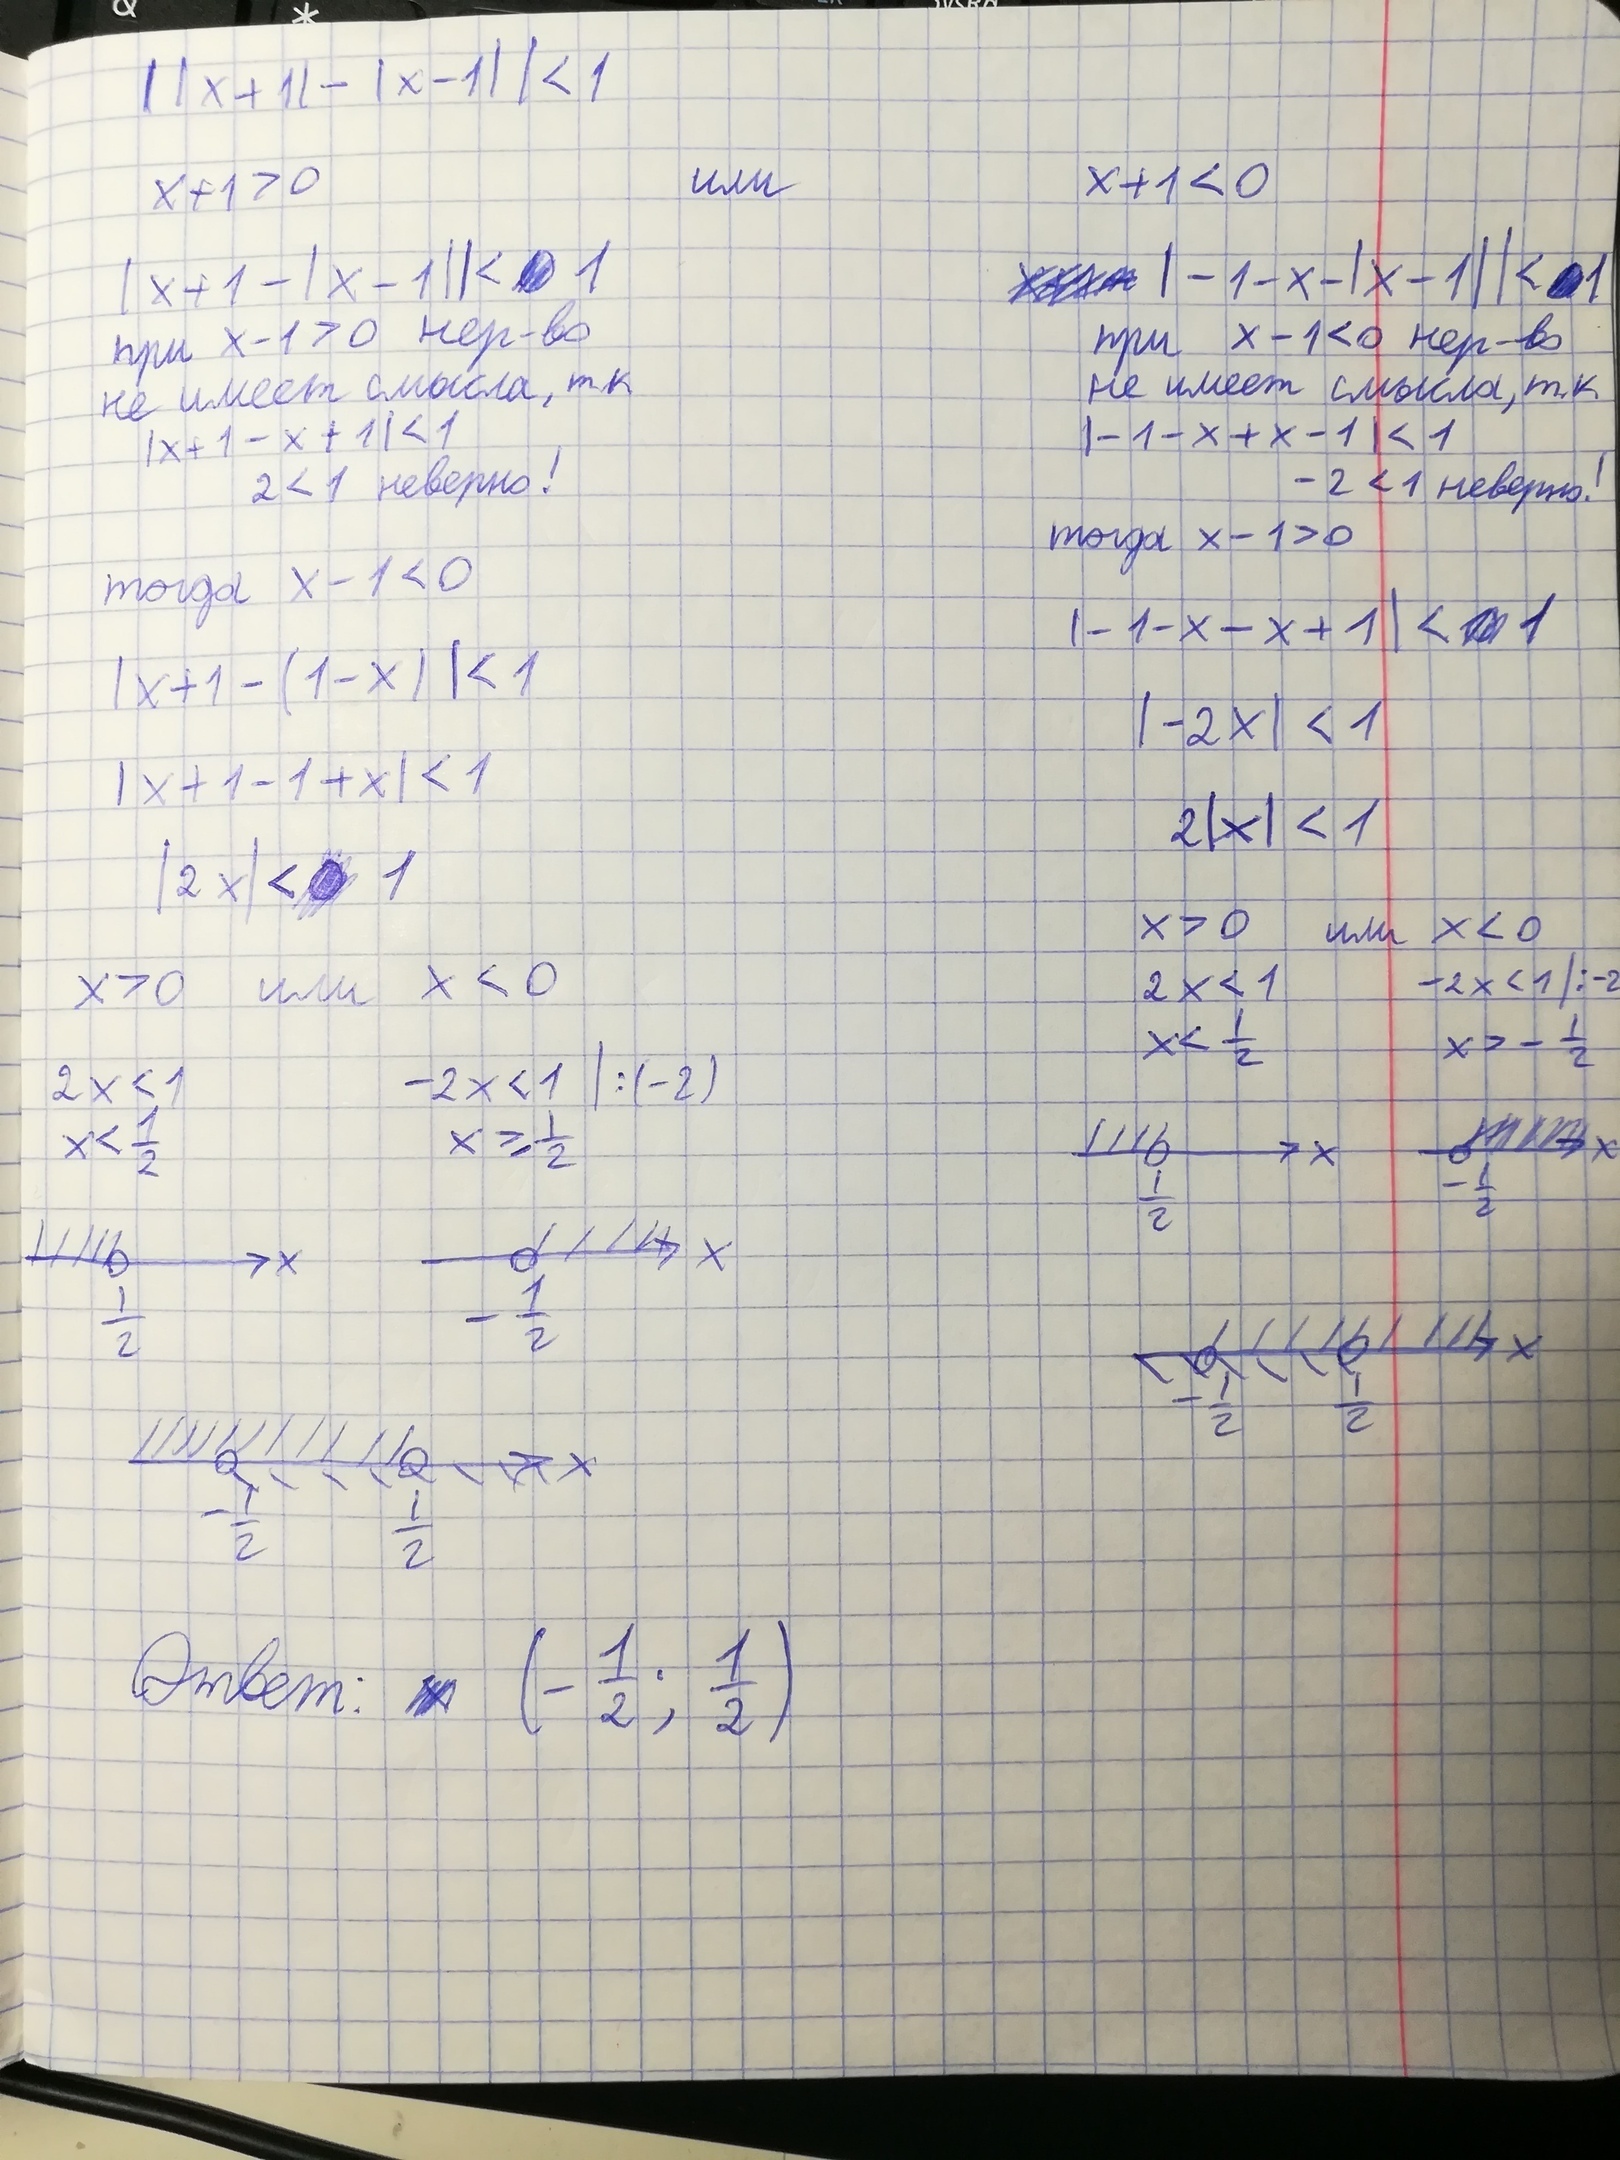 ||x+1|-|x-1||<1
x+1>0 или x+1<0
|x+1-|x-1||<1
при x-1>0 нер-во
не имеет смысла, т.к
|x+1-x+1|<1
2<1 неверно!
тогда x-1<0
|x+1-(1-x)|<1
|x+1-1+x|<1
|2x|<1
x>0 или x<0
2x<1 -2x<1 |:(-2)
x<1/2 x>-1/2
x x
1/2 -1/2
x
-1/2 1/2
|-1-x-|x-1||<1
при x-1<0 нер-во
не имеет смысла, т.к
|-1-x+x-1|<1
-2<1 неверно!
тогда x-1>0
|-1-x-x+1|<1
|-2x|<1
2|x|<1
x>0 или x<0
2x<1 -2x<1 |:-2
x<1/2 x>-1/2
x x
1/2 -1/2
x
-1/2 1/2
Ответ: (-1/2; 1/2)